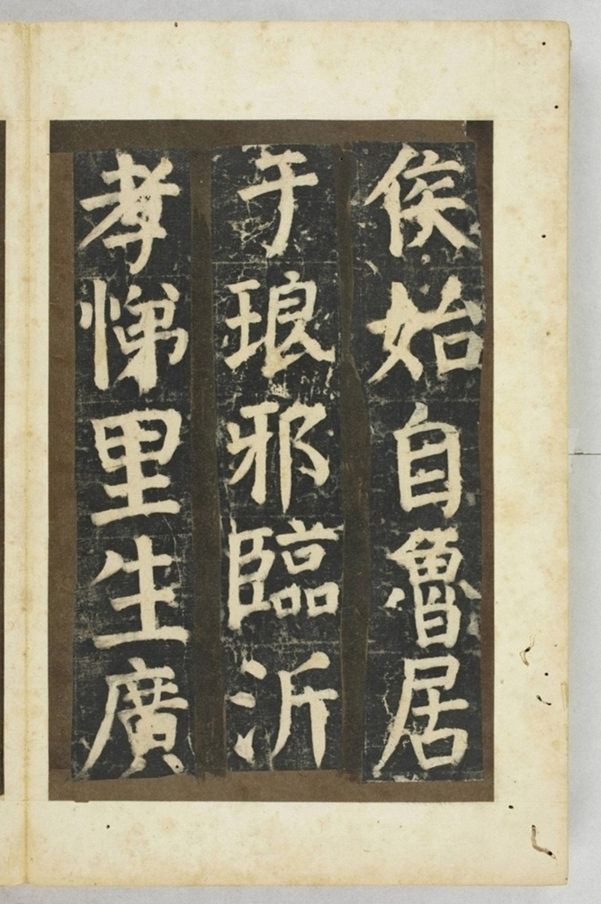 侯始自魯居
于琅邪臨沂
孝悌里生廣